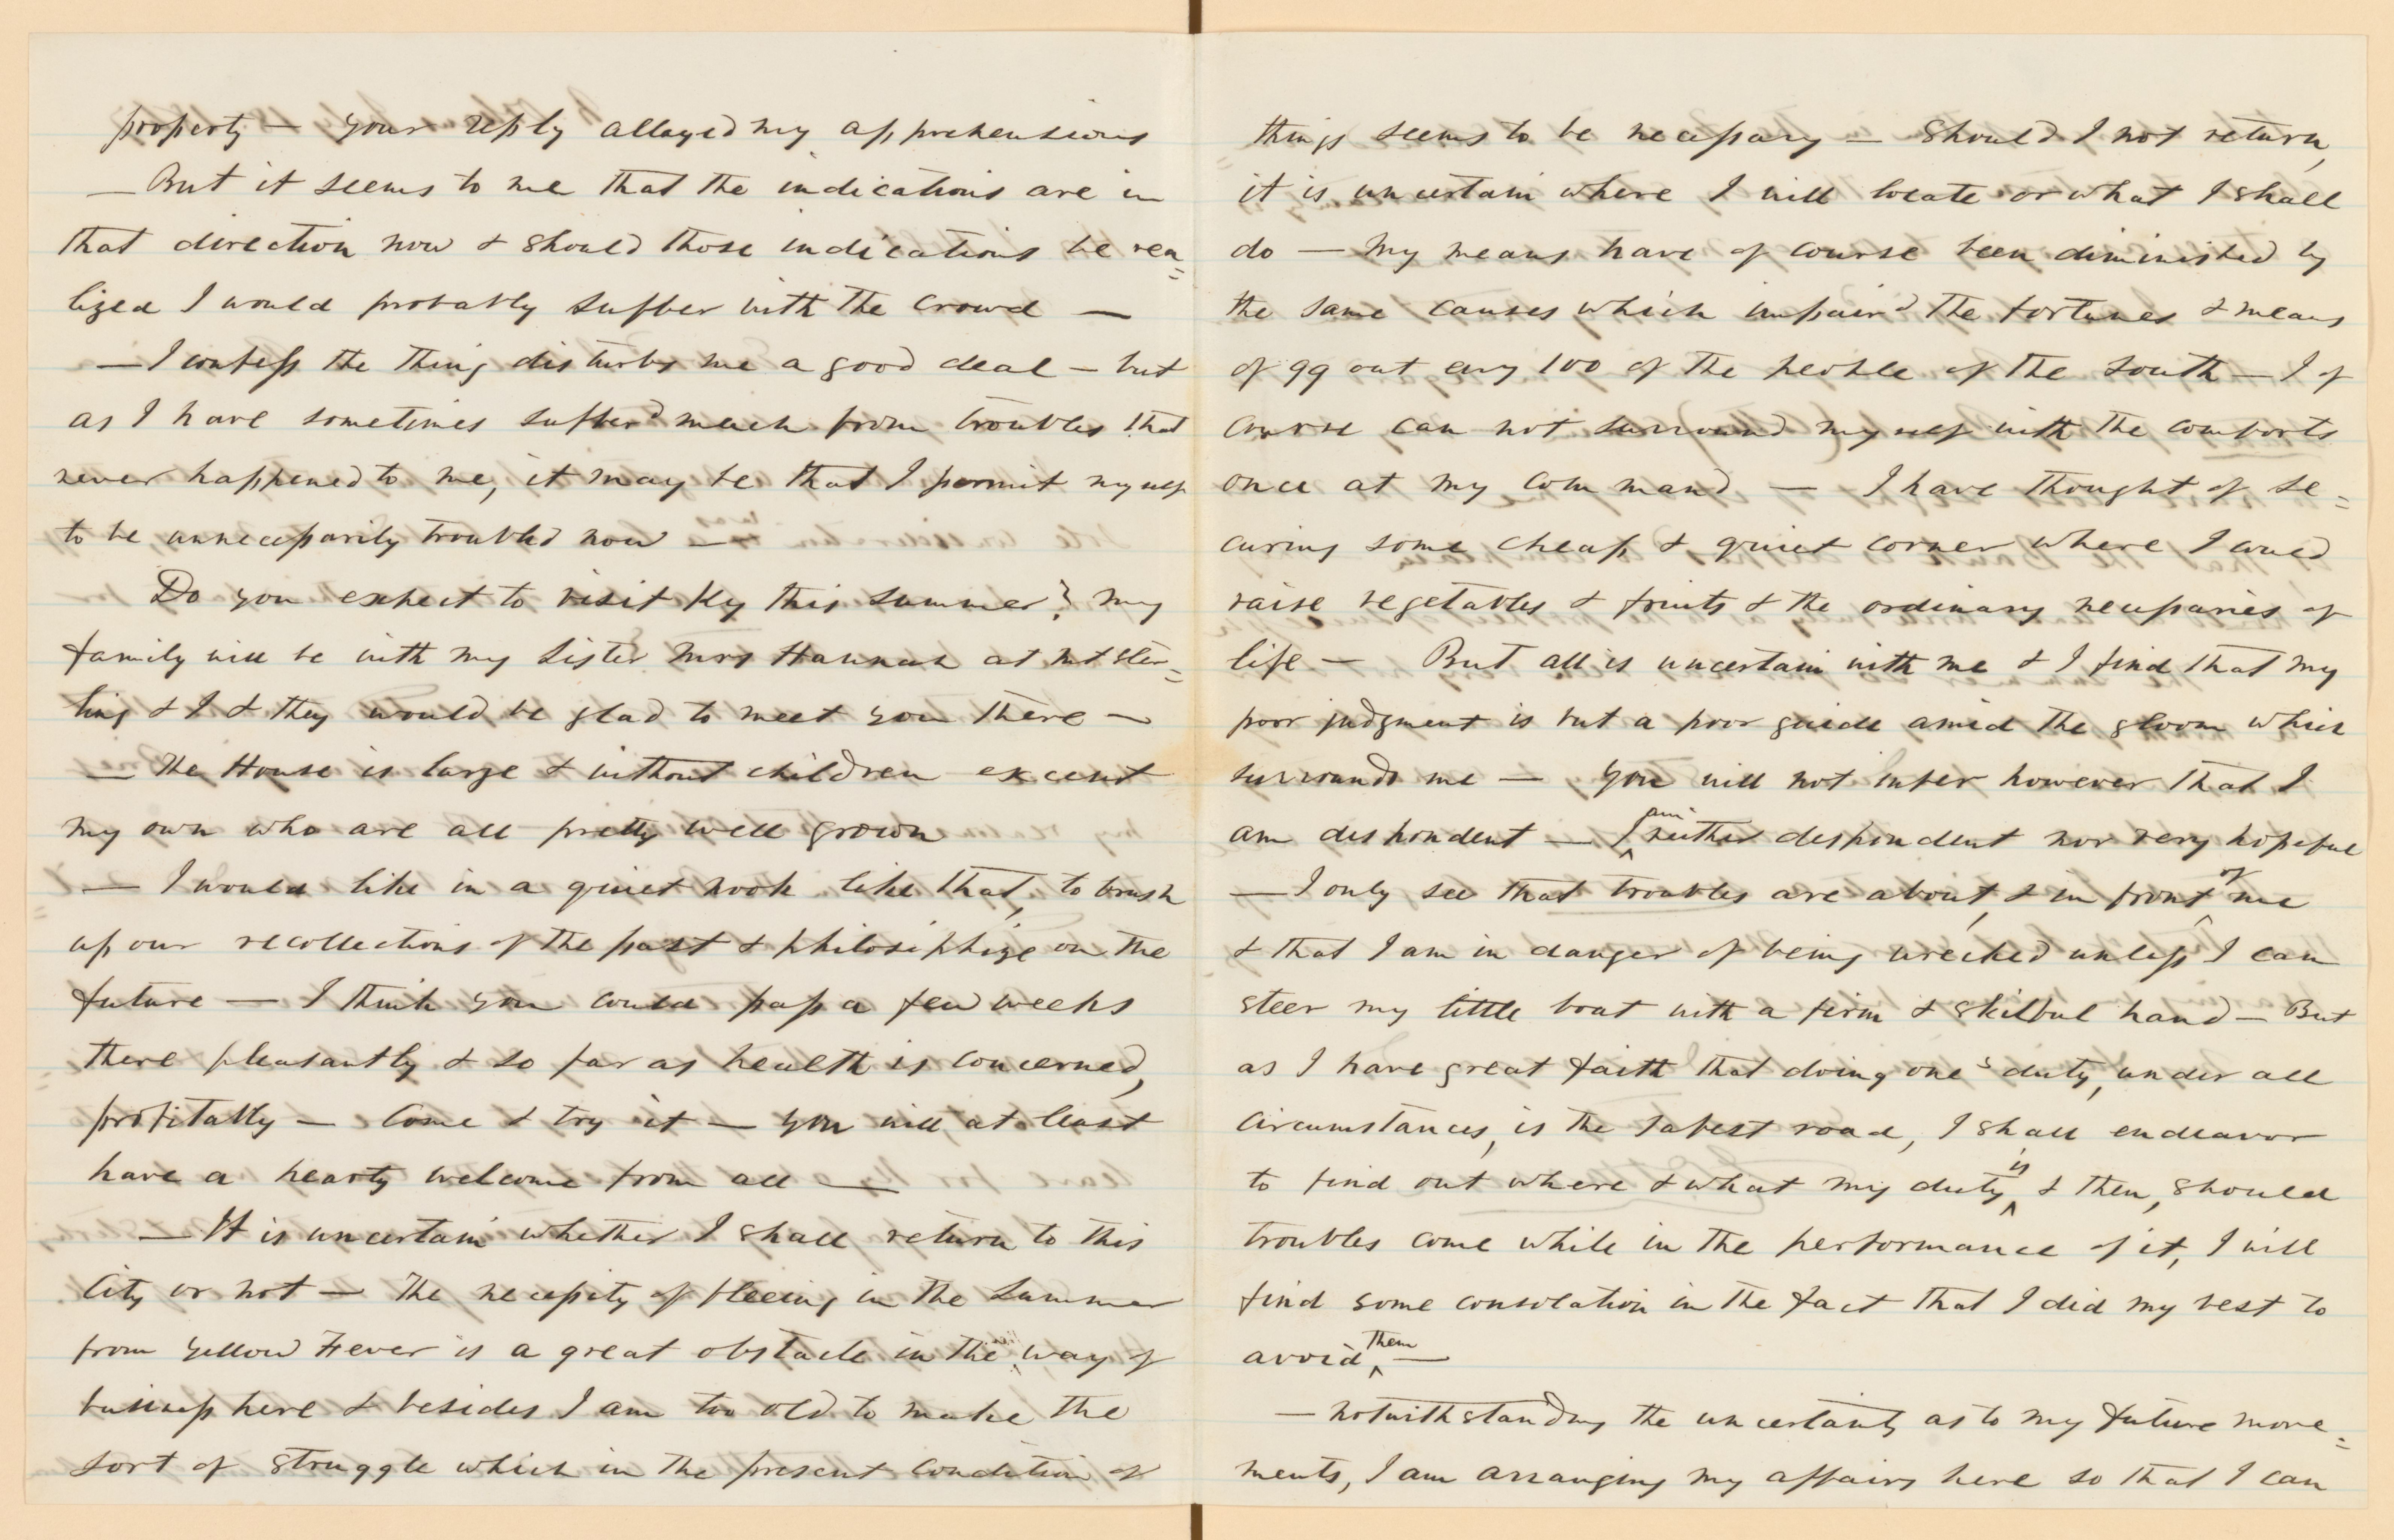 property — your reply allayed my apprehensions
— But it seems to me that the indications are in
that direction now & should those indications be rea=
lized I would probably suffer with the crowd —
— I confess the thing disturbs me a good deal — but
as I have sometimes sufferd much from troubles that
never happened to me, it may be that I permit myself
to be unnecessarily troubled now —
Do you expect to visit Ky this summer? My
family will be with my sister Mrs Hannah at Mt Ster=
ling & I & they would be glad to meet you there —
— The House is large & without children except
my own who are all pretty well grown
— I would like in a quiet nook like that, to brush
up our recollections of the past & philosiphize on the
future — I think you could pass a few weeks
there pleasantly & so far as health is concerned,
profitably — Come & try it — you will at least
have a hearty welcome from all —
— It is uncertain whether I shall return to this
City or not — The necessity of fleeing in the summer
from Yellow Fever is a great obstacle in the way of
business here & besides I am too old to make the
sort of struggle which in the present condition of
things seems to be necessary — Should I not return,
it is uncertain where I will locate or what I shall
do — My means have of course been diminished by
the same causes which impaird the fortunes & means
of 99 out evry 100 of the people of the South — I of
course can not surround myself with the comforts
once at my command — I have thought of se=
curing some cheap & quiet corner where I could
raise vegetables & fruits & the ordinary necessaries of
life — But all is uncertain with me & I find that my
poor judgment is but a poor guide amid the gloom which
surrounds me — You will not infer however that I
am despondent — I am neither despondent nor very hopeful
— I only see that troubles are about, & in front of me
& that I am in danger of being wrecked unless I can
steer my little boat with a firm & skilful hand — But
as I have great faith that doing one's duty, under all
Circumstances, is the safest road, I shall endeavor
to find out where & what my duty is & then, should
troubles come while in the performance of it, I will
find some consolation in the fact that I did my best to
avoid them —
— Notwithstanding the uncertainty as to my future move=
ments, I am arranging my affairs here so that I can